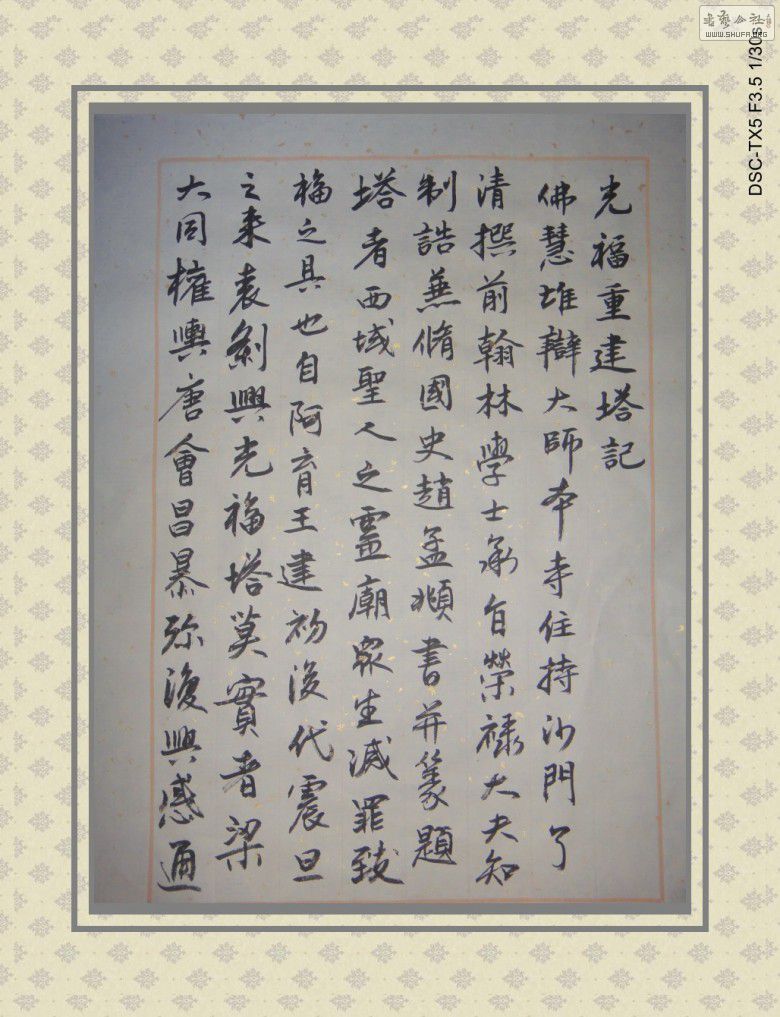 光福重建塔記
佛慧雄辯大師本寺住持沙門了
清撰前翰林學士承旨榮祿大夫知
制誥兼脩國史趙孟頫書并篆題
塔者西域聖人之靈廟眾生滅罪致
福之具也自阿育王建初後代震旦
之來表剎興光福塔莫實者梁
大同權輿唐會昌暴殄復興感通
WWW.SHUFA.ORG
DSC-TX5 F3.5 1/30s